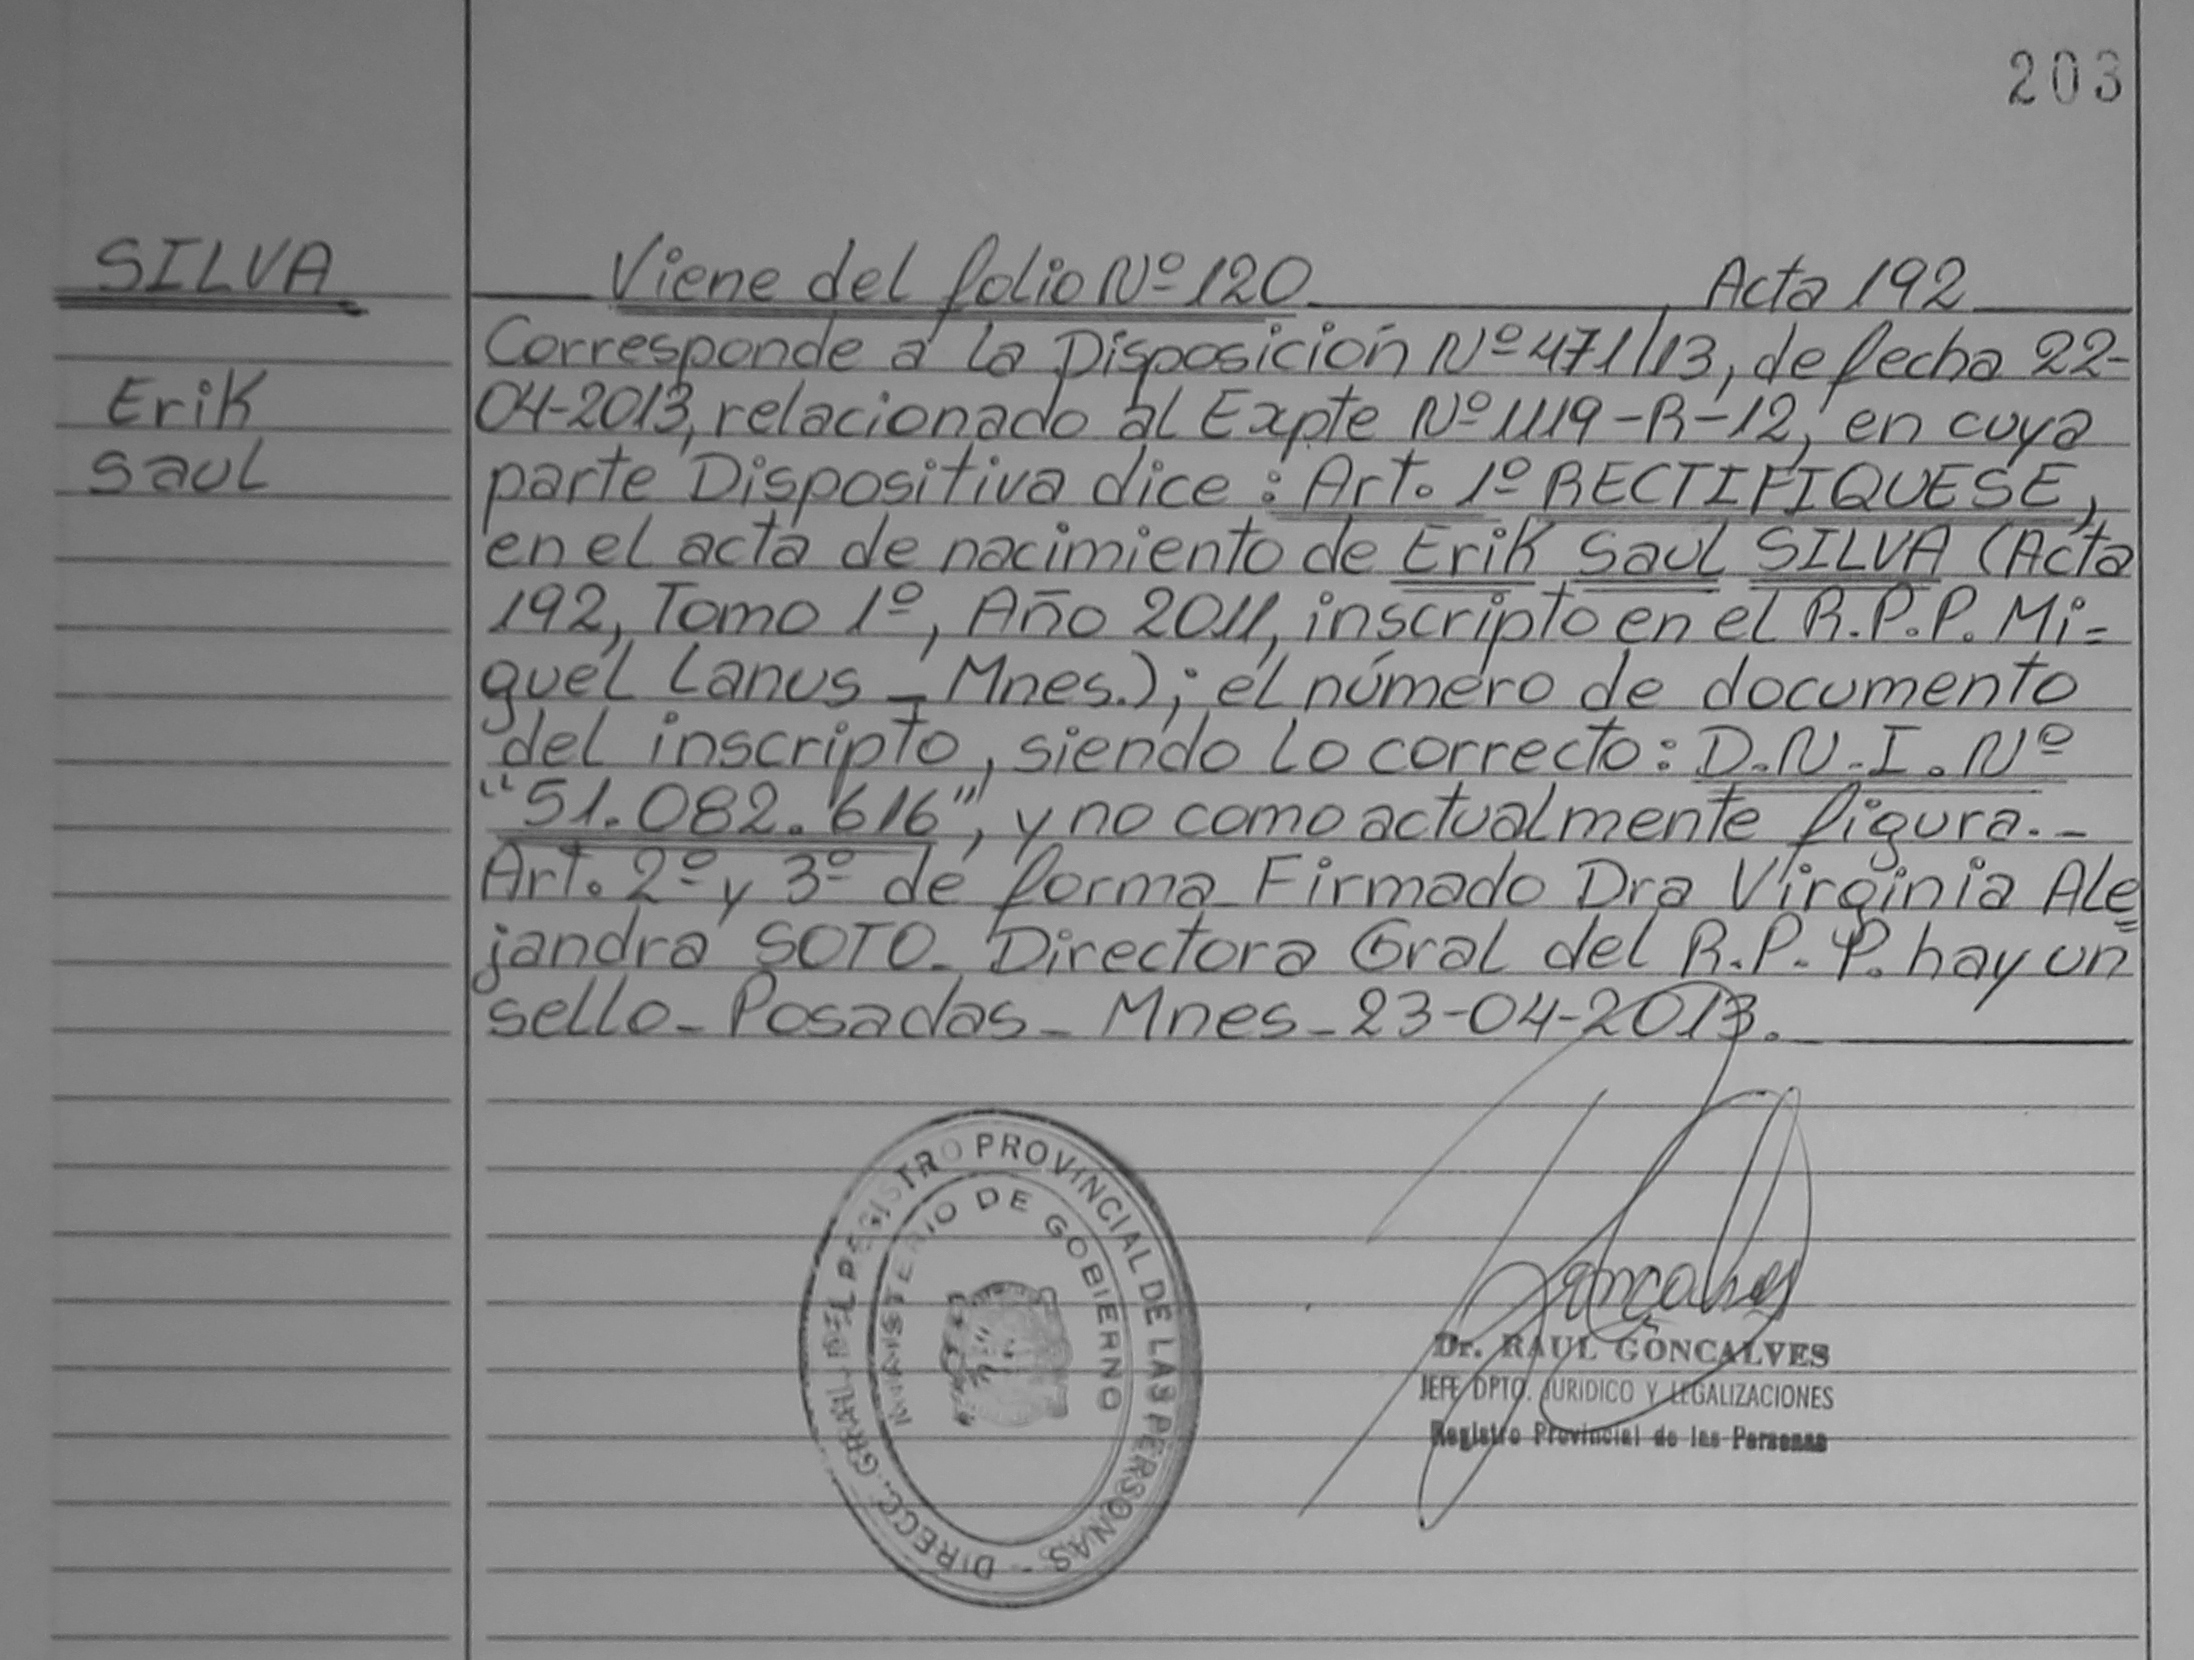 203
SILVA
Erik
Saul
Viene del folio Nº 120 Acta 192
Corresponde a la Disposición Nº 471/13, de fecha 22-
04-2013, relacionado al Expte Nº 1119-R-12, en cuya
parte Dispositiva dice: Art. 1º RECTIFIQUESE,
en el acta de nacimiento de Erik Saul SILVA (Acta
192, Tomo 1º, Año 2011, inscripto en el R.P.P. Mi=
guel Lanus _ Mnes.); el número de documento
del inscripto, siendo lo correcto: D.N.I. Nº
"51.082.616", y no como actualmente figura.-
Art. 2º y 3º de forma_ Firmado Dra Virginia Ale=
jandra SOTO_ Directora Gral del R.P.P. hay un
sello_ Posadas_ Mnes_ 23-04-2013.
DIRECC. GRAL. DEL REGISTRO PROVINCIAL DE LAS PERSONAS -
MINISTERIO DE GOBIERNO
Gonçalves
Dr. RAUL GONCALVES
JEFE DPTO. JURIDICO Y LEGALIZACIONES
Registro Provincial de las Personas